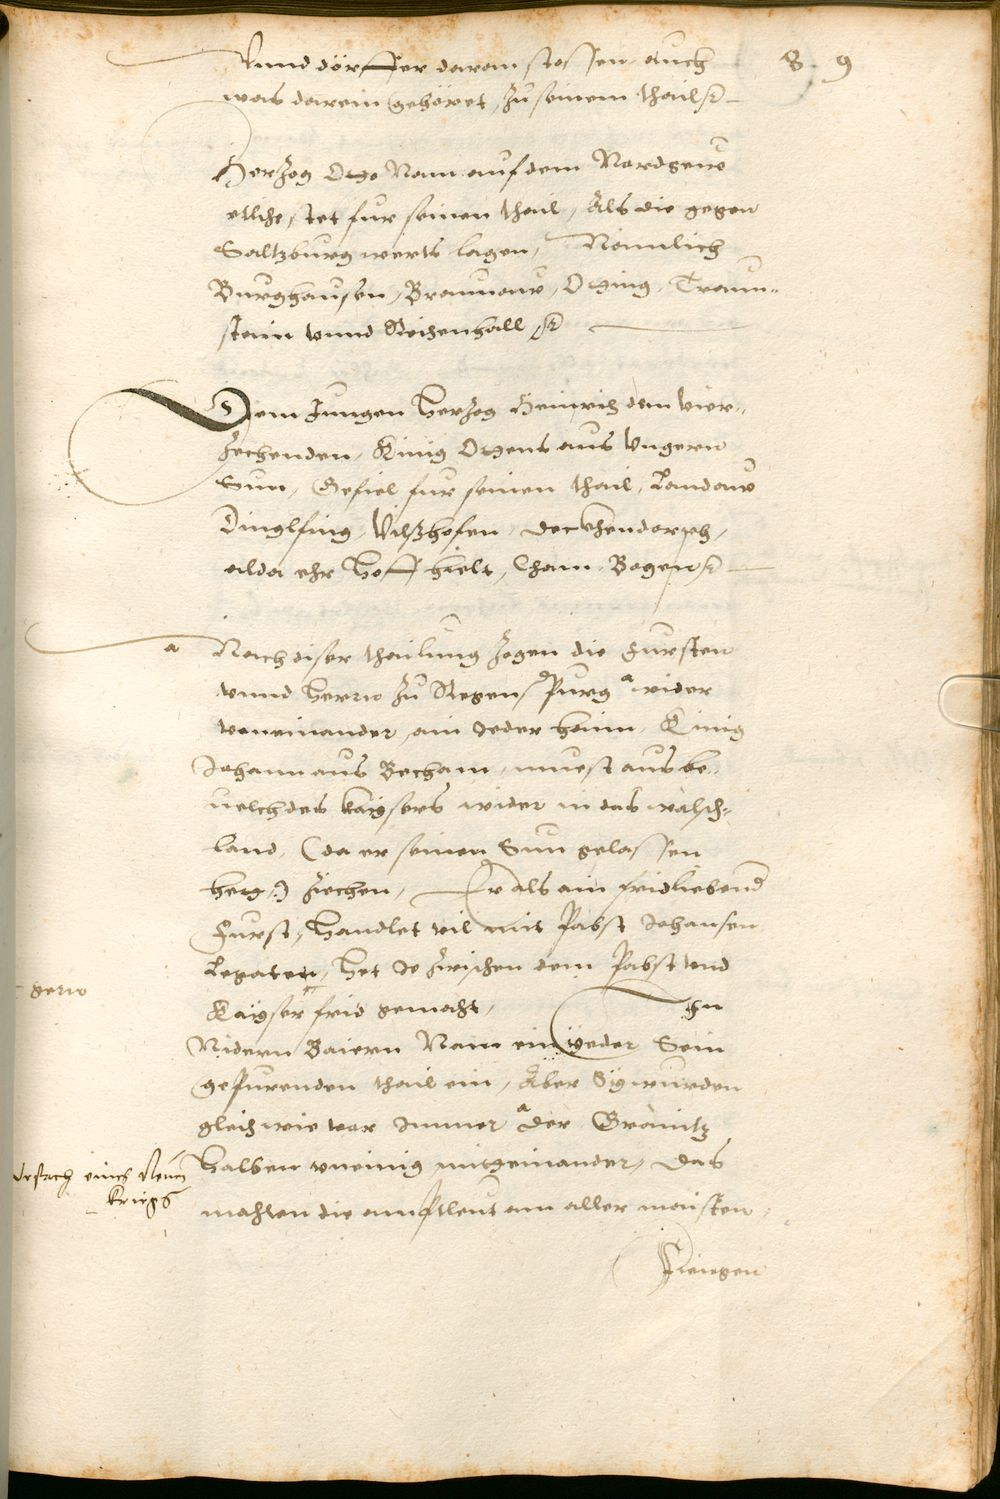 8 9
Vnnd dörffer daran stossen auch
was darein gehöret, zu seinem thail ꝛc
Herzog Otho Nam auf dem Nordgew
etliche stet fur seinen thail, Als die gegen
Saltzburg werts lagen, Nämlich
Burghausen, Braunaw, Otting, Traun-
stain vnnd Reichenhall ꝛc
Dem Jungen Herzog Heinrich dem vier-
zechenden, König Othens aus Vngern
Sun, Gefiel fur seinen thail, Landaw
Dinglfing, Vilßhofen, Deckhendorff,
alda ehr Hoff hielt, Cham, Bogen ꝛc
a Nach diser thailung zogen die Fürsten
vnnd Herrn zu Regenspurg a wider
voneinander, ain Jeder haim, König
Johann aus Becham, muest aus be-
uelch des Kaysers wider in das wälsch-
land, (da er seinen Sun gelassen
het,) ziechen, Er als ain fridliebend
Fürst, Handlet vil mit Pabst Johansen
Legaten, Het Je zwischen dem Pabst vnd
gern
Kayser frid gemacht, In
Nidern Baiern Nam ein yeder Sein
gepurenden thail ein, Aber Sy wurden
gleich wie vor Immer a der Gränitz
Vrsach eines Neuen
Kriegs
Halben vneinig miteinander, Das
machten die amptleut am aller maisten,
Fiengen